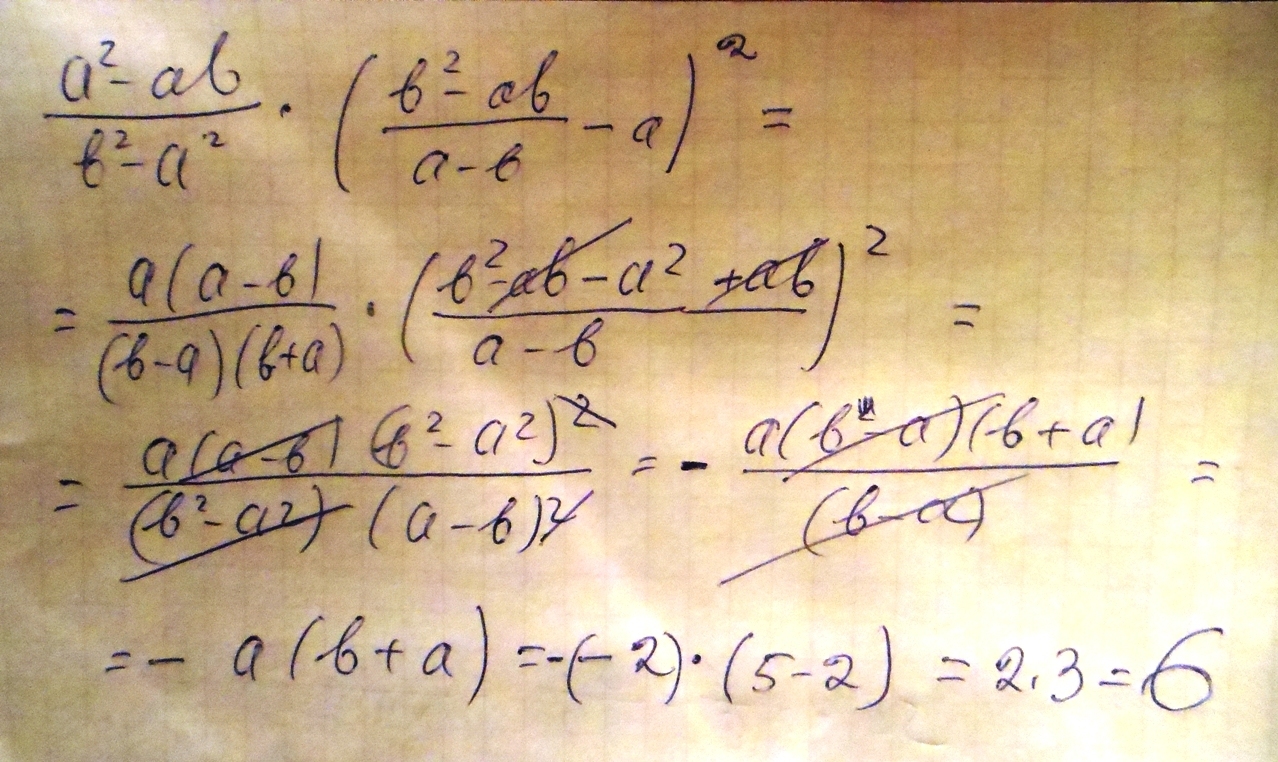 (a² - ab)/(b² - a²) · ((b² - ab)/(a - b) - a)² =
= (a(a - b))/((b - a)(b + a)) · ((b² - ab - a² + ab)/(a - b))² =
= (a(a - b)(b² - a²)²)/((b² - a²)(a - b)²) = - (a(b - a)(b + a))/((b - a)) =
= - a(b + a) = -(-2)·(5 - 2) = 2·3 = 6